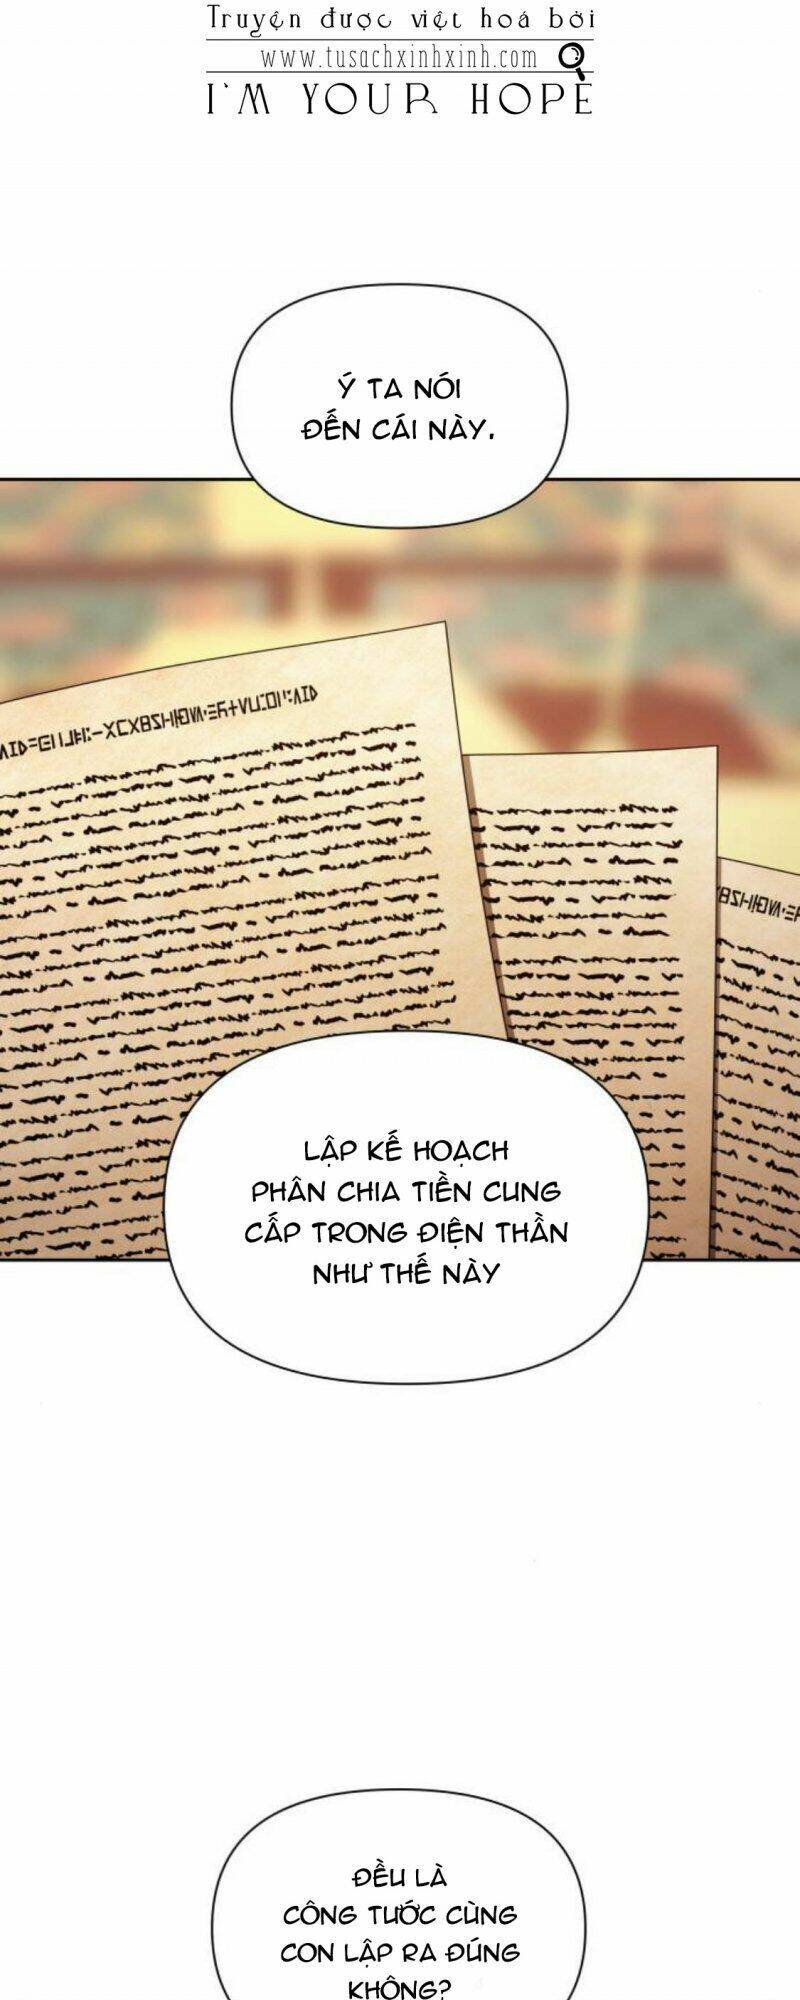 Truyện được việt hoá bởi
www.tusachxinhxinh.com
I'M YOUR HOPE
Ý TA NÓI
ĐẾN CÁI NÀY.
LẬP KẾ HOẠCH
PHÂN CHIA TIỀN CUNG
CẤP TRONG ĐIỆN THẦN
NHƯ THẾ NÀY
ĐỀU LÀ
CÔNG TƯỚC CÙNG
CON LẬP RA ĐÚNG
KHÔNG?